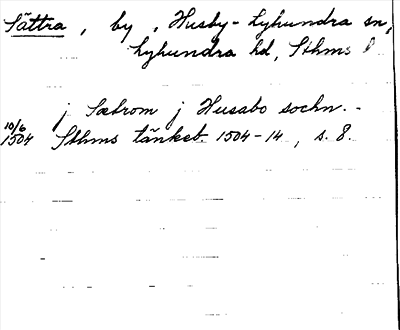 Sättra, by, Husby-Lyhundra sn,
Lyhundra hd, Sthms l
j Sætrom j Husabo sochn.
10/6
1504 Sthms tänkeb. 1504-14, s. 8.